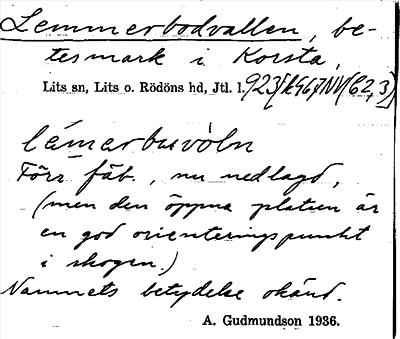 Lemmerbodvallen, be-
tesmark i Korsta,
Lits sn, Lits o. Rödöns hd, Jtl. l.
lámarbusvòln
Förr fäb., nu nedlagd,
(men den öppna platsen är
en god orienteringspunkt
i skogen.)
Namnets betydelse okänd.
A. Gudmundson 1936.